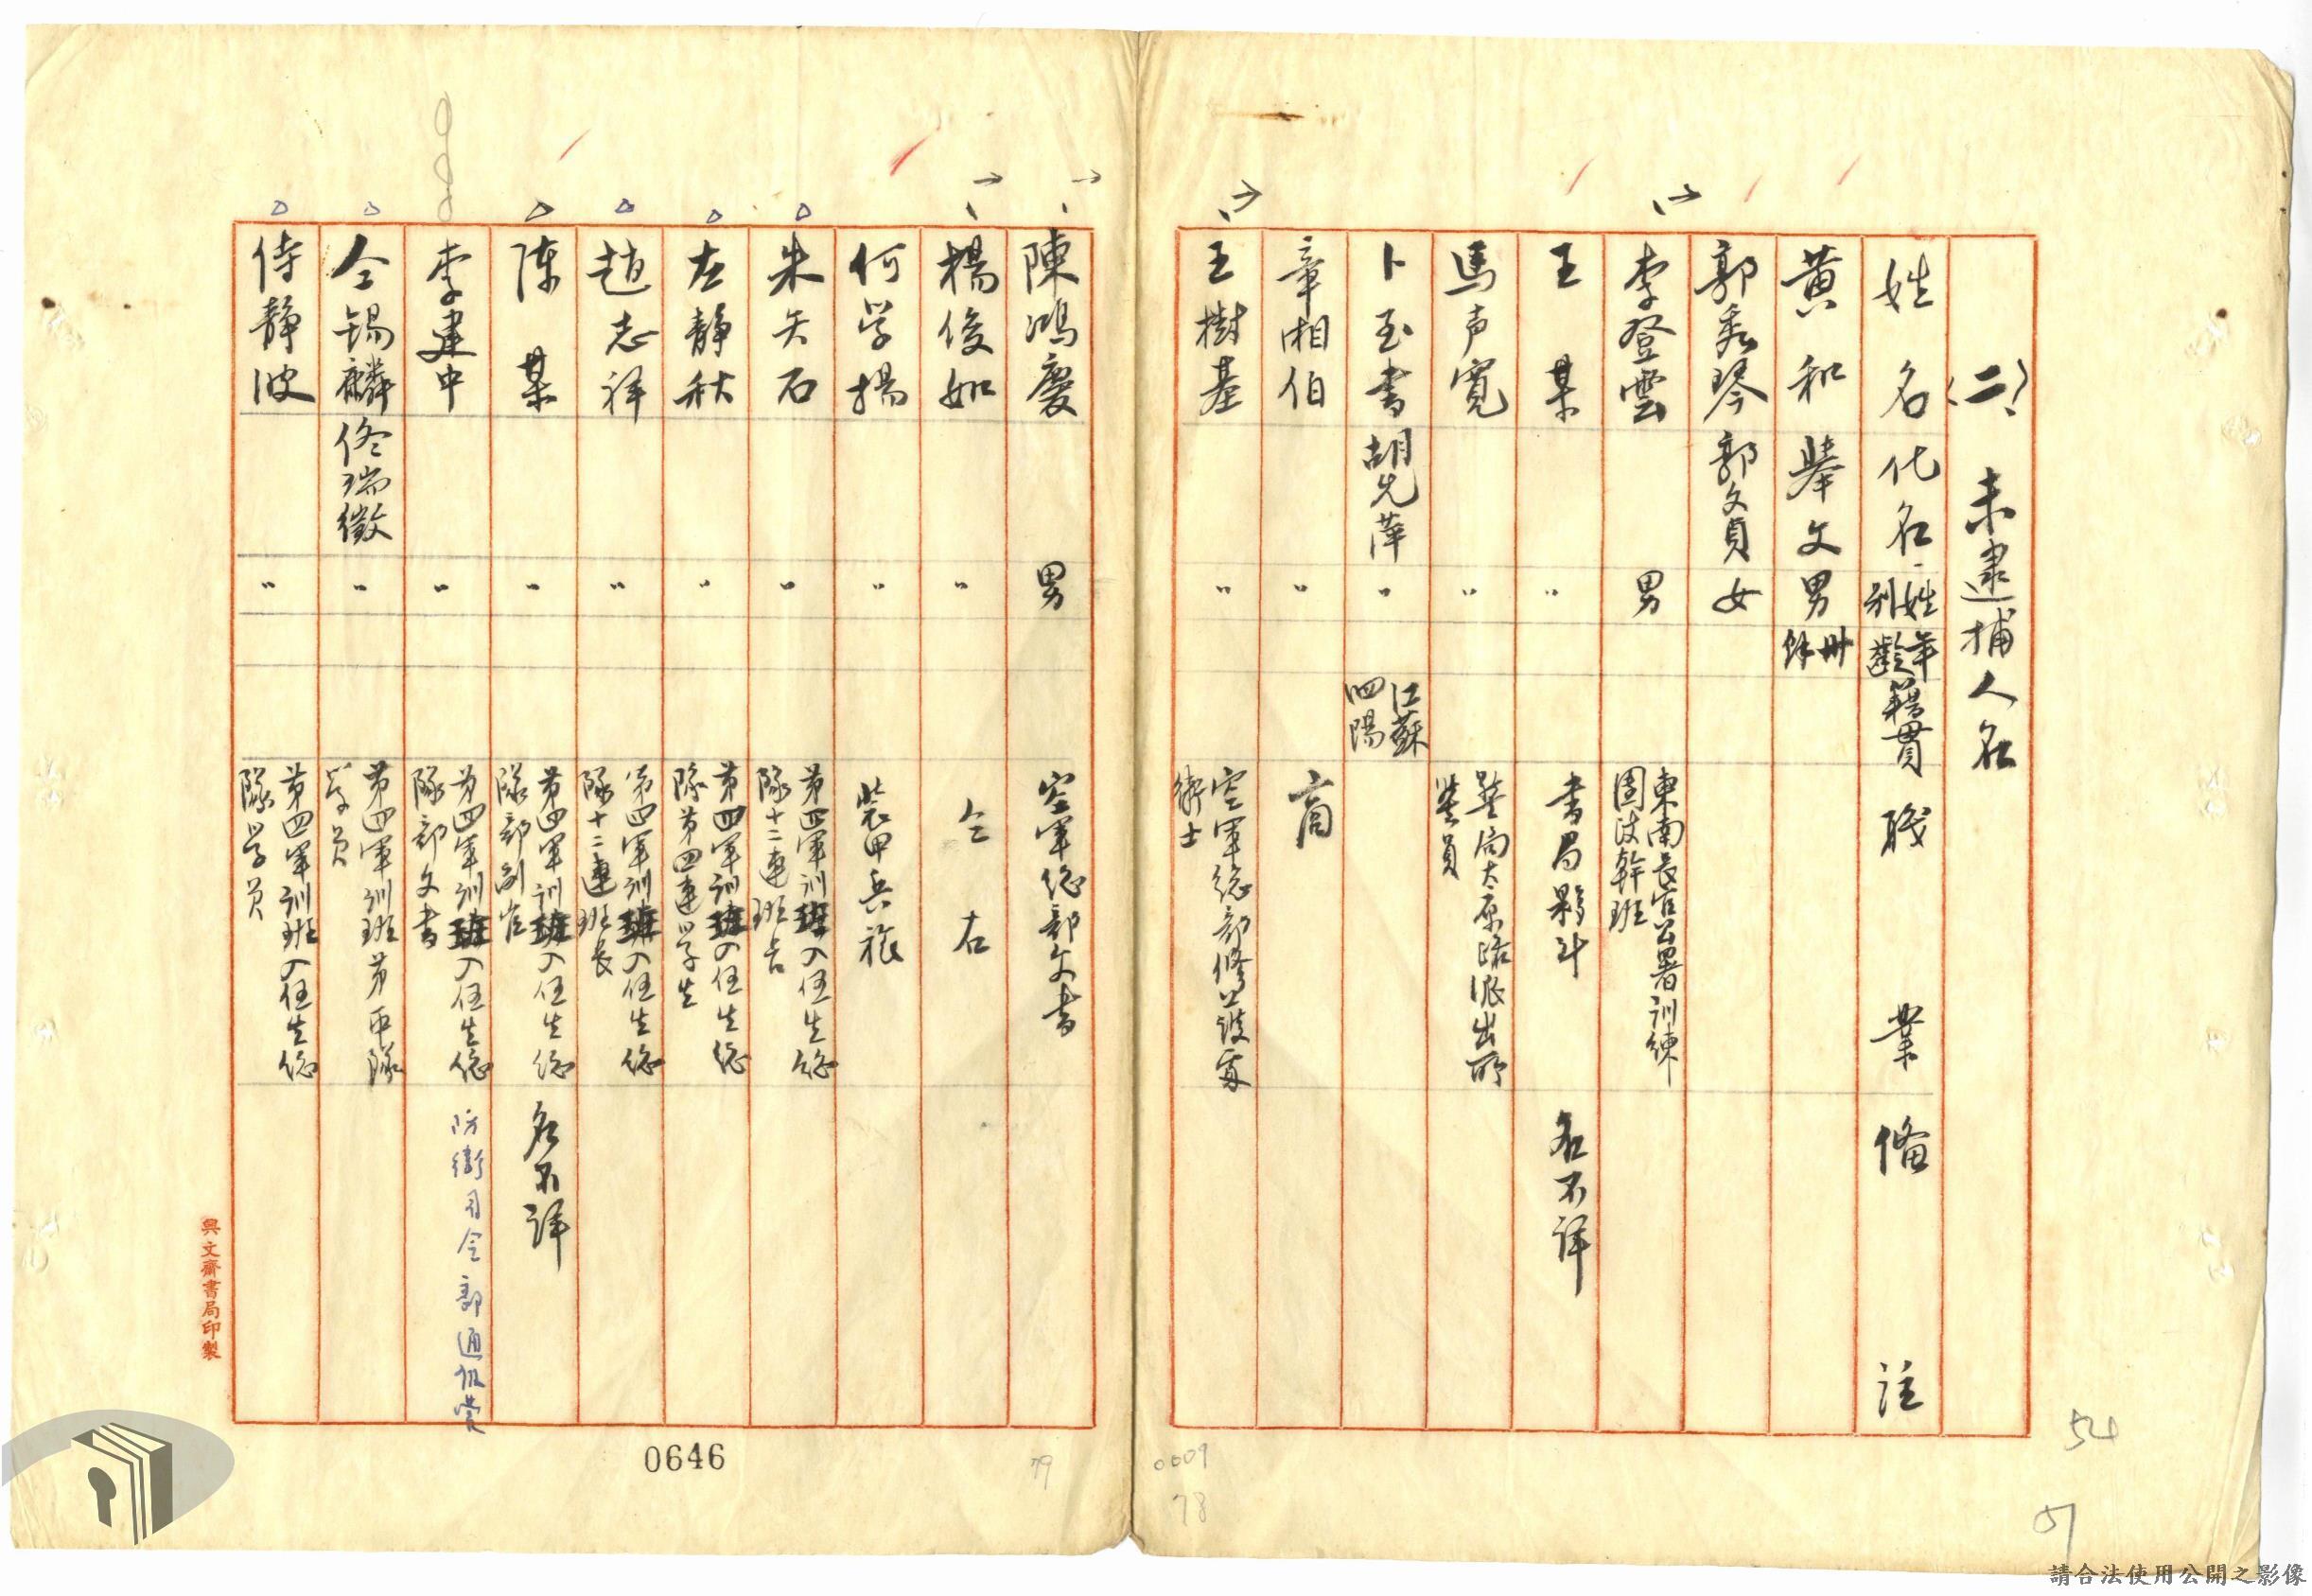 (二)、未逮捕人名
姓名 化名 姓別 年齡 籍貫 職業 備註
黃和 舉文 男 卅餘
郭秀琴 郭文貞 女
李登雲 男 東南長官公署訓練團政幹班
王某 〃 書局夥計 名不詳
馬声寬 〃 警局太原路派出所警員
卜玉書 胡先萍 〃 江蘇泗陽
章湘伯 〃 商
王樹基 〃 空軍總部修護處 士
陳鴻慶 男 空軍總部文書
楊俊如 〃 仝右
何学揚 〃 裝甲兵旅
朱矢石 〃 第四軍訓班入伍生總隊十二連班長
左静秋 〃 第四軍訓班入伍生總隊第四連学生
趙志祥 〃 第四軍訓班入伍生總隊十二連班長
陳某 〃 第四軍訓班入伍生總隊部副官 名不詳
李建中 〃 第四軍訓班入伍生總隊部文書 防衛司令部通訊營
仝锡麟 佟瑞徵 〃 第四軍訓班第 中隊学員
侍静波 〃 第四軍訓班入伍生總隊学員
興文齋書局印製
0646
79
0009
78
54
51
請合法使用公開之影像